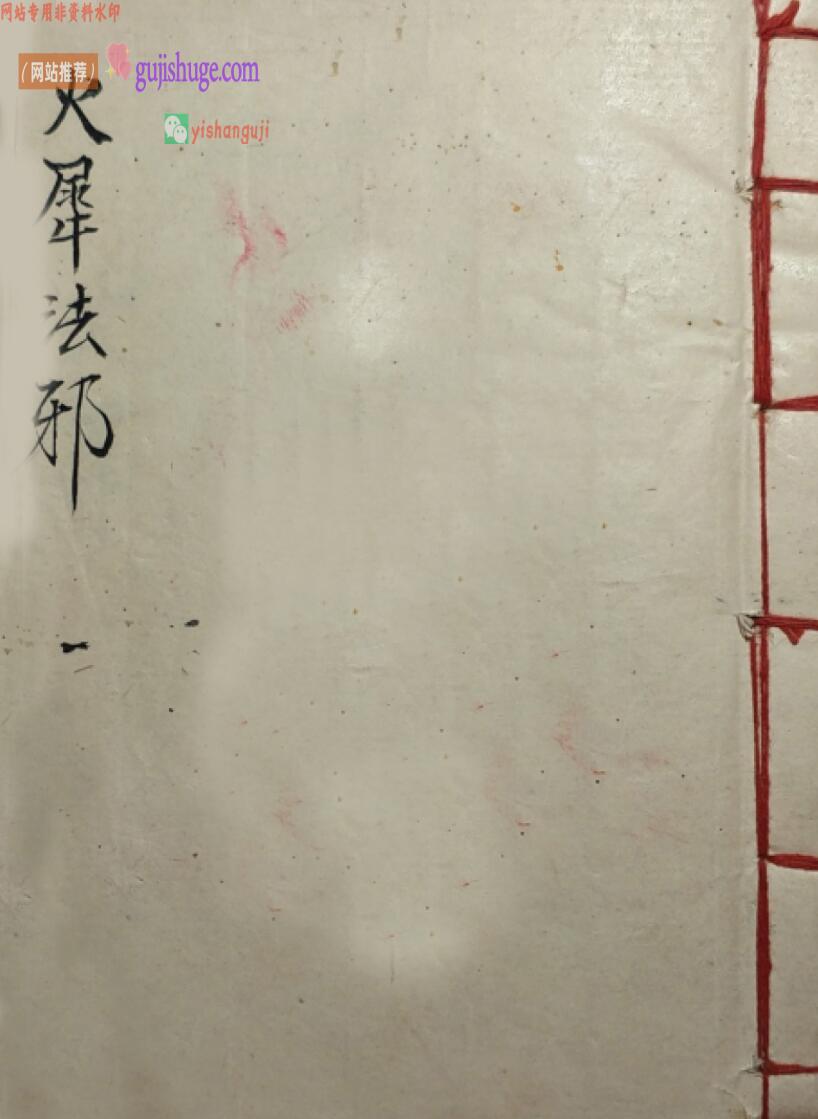 网站专用非资料水印
(网站推荐) gujishuge.com
yishanguji
火犀法邪